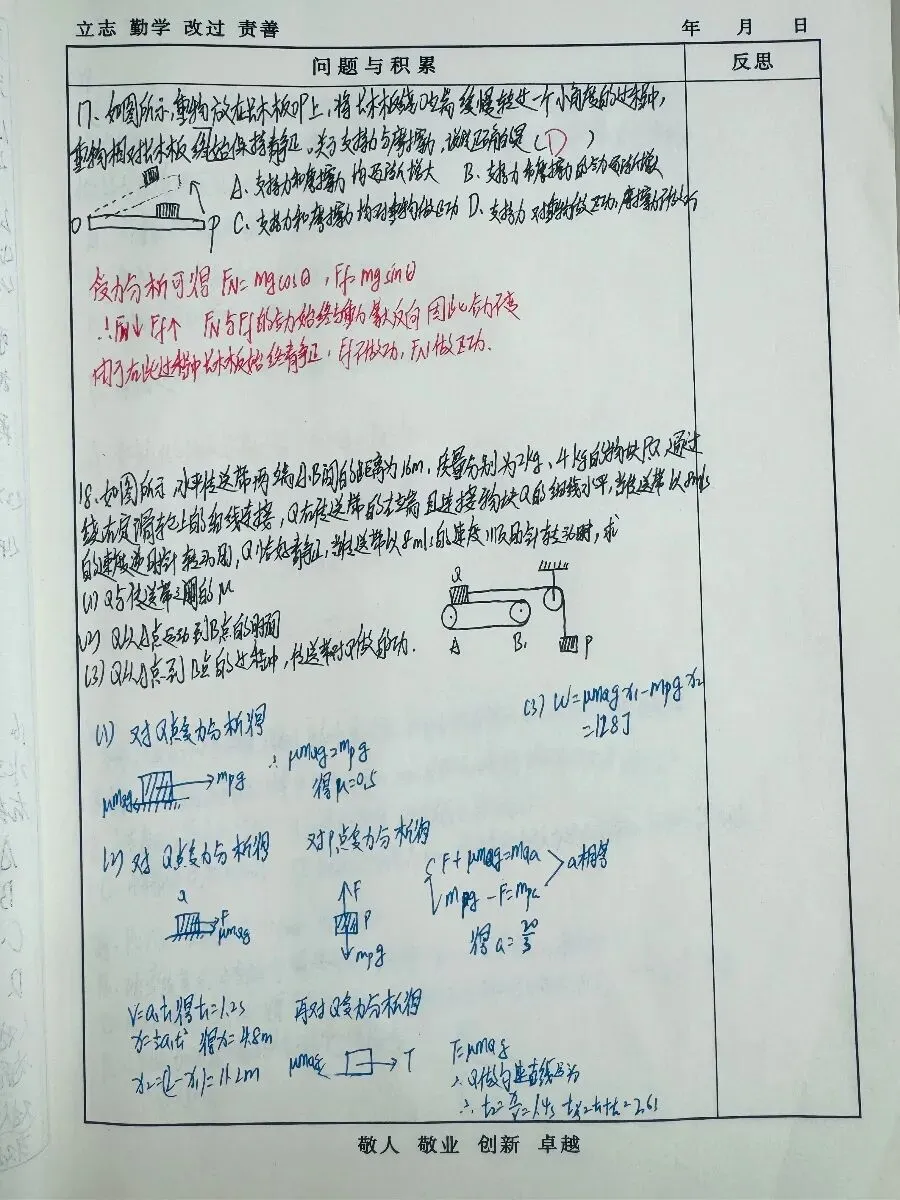 立志 勤学 改过 责善
年 月 日
问题与积累
反思
17、如图所示,重物放在长木板OP上,将长木板绕O端缓慢转过一个小角度的过程中,
重物相对长木板始终保持静止。关于支持力与摩擦力,说法正确的是(D)
A、支持力和摩擦力均逐渐增大 B、支持力和摩擦力的合力逐渐增大
C、支持力和摩擦力均对重物做正功 D、支持力对重物做正功,摩擦力不做功
O P
受力分析可得 FN=mgcosθ,Ff=mgsinθ
∴FN↓ Ff↑ FN与Ff的合力始终与重力等大反向 因此合力不变
由于在此过程中长木板始终静止,Ff不做功,FN做正功.
18、如图所示,水平传送带两端A、B间的距离为16m,质量分别为2kg、4kg的物块P、Q,通过
绕在定滑轮上的细线连接,Q在传送带的左端且连接物块Q的细线水平,当传送带以8m/s
的速度逆时针转动时,Q恰好静止,当传送带以8m/s的速度顺时针转动时,求
(1) Q与传送带之间的μ
(2) Q从A点运动到B点的时间
(3) Q从A点到B点的过程中,传送带对Q做的功.
Q
A B P
(1) 对Q点受力分析得
μmQg mPg
∴ μmQg=mPg
得μ=0.5
(3) W=μmQgx1-mPgx2
=128J
(2) 对Q点受力分析得 对P点受力分析得
Q F μmQg
F P mPg
F+μmQg=mQa
mPg-F=mPa
a相等
得a=20/3
V=a1t1得t1=1.2s
x=½a1t1² 得x=4.8m
x2=(L-x1)=11.2m
再对Q受力分析得
μmQg T
T=μmQg
∴Q做匀速直线运动
∴t2=x/v=1.4s t总=t1+t2=2.6s
敬人 敬业 创新 卓越